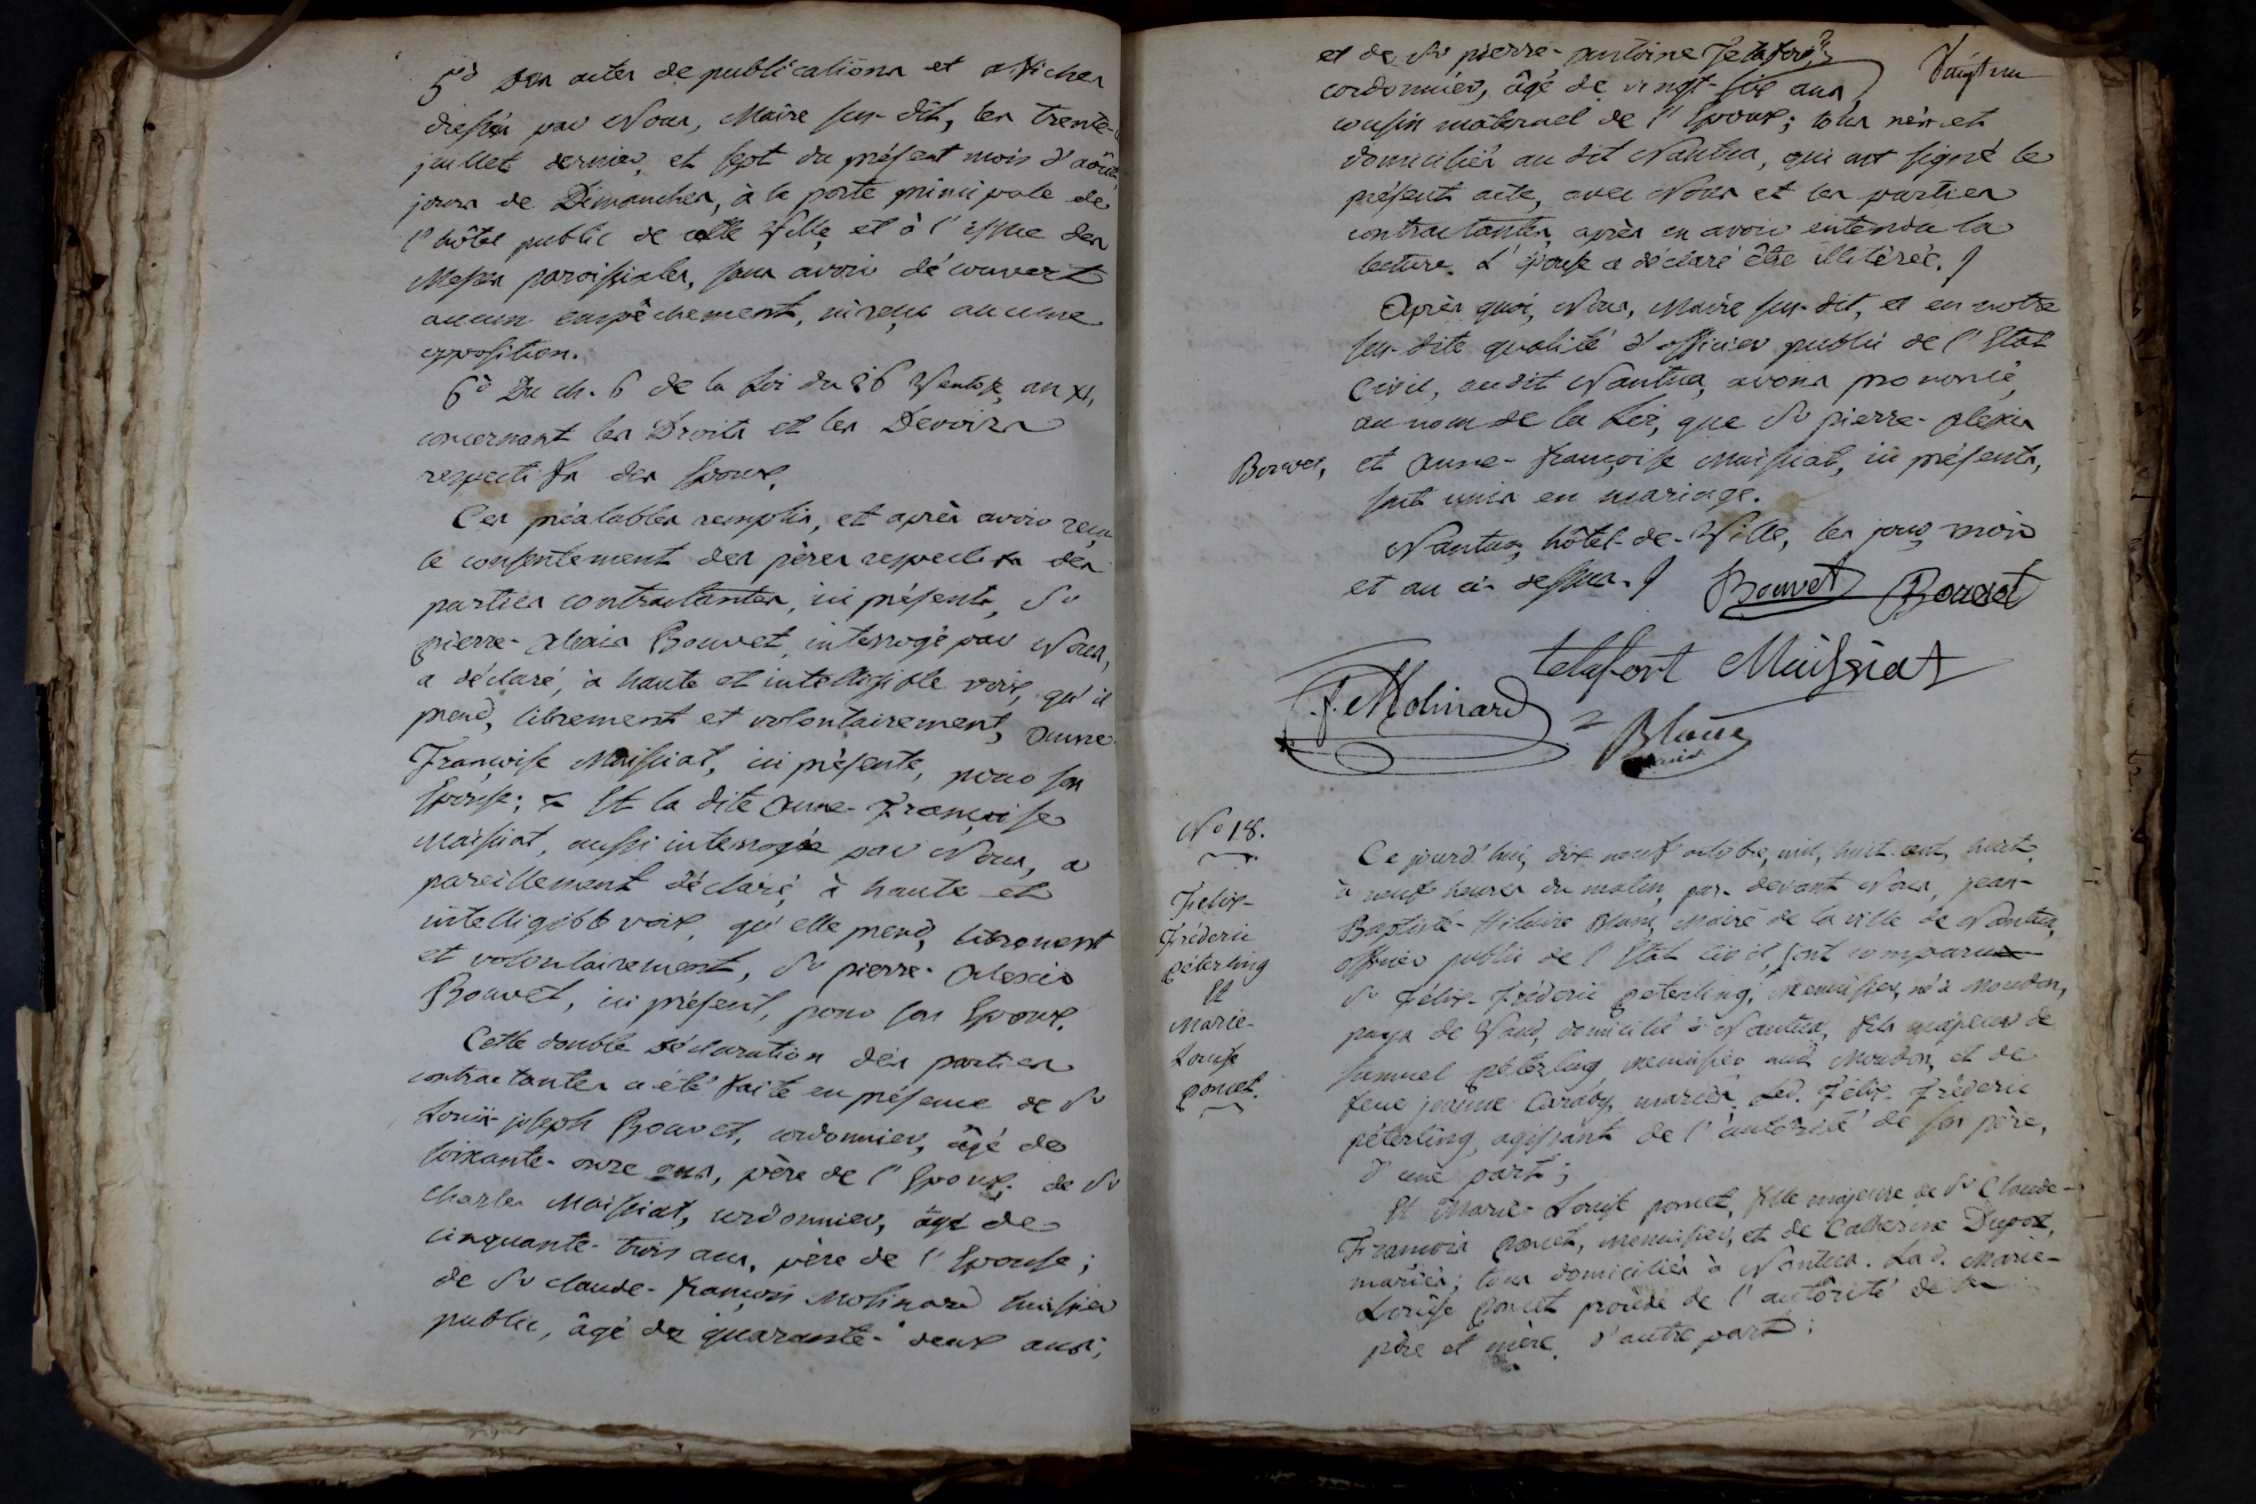 5° Des actes de publications et affiches
dressés par Nous, Maire sus-dit, les trente-
juillet dernier, et sept du présent mois d'août,
jours de Dimanches, à la porte principale de
l'hôtel public de cette Ville, et à l'issue des
Messes paroissiales, sans avoir découvert
aucun empêchement, ni reçu aucune
opposition.
6° Du ch. 6 de la Loi du 26 Ventose, an XI,
concernant les Droits et les Devoirs
respectifs des Epoux.
Ces préalables remplis, et après avoir reçu
le consentement des pères respectifs des
parties contractantes, ici présents, Sr
pierre-Alexis Bouvet, interrogé par Nous,
a déclaré, à haute et intelligible voix, qu'il
prend, librement et volontairement, Anne-
Françoise Maissiat, ici présente, pour son
Epouse; Et la dite Anne-Françoise
Maissiat, aussi interrogée par Nous, a
pareillement déclaré, à haute et
intelligible voix, qu'elle prend, librement
et volontairement, Sr pierre-Alexis
Bouvet, ici présent, pour son Epoux.
Cette double déclaration des parties
contractantes a été faite en présence de Sr
Louis-joseph Bouvet, cordonnier, âgé de
soixante-onze ans, père de l'Epoux; de Sr
Charles Maissiat, cordonnier, âgé de
cinquante-trois ans, père de l'Epouse;
de Sr claude-françois Molinard huissier
public, âgé de quarante-deux ans;
et de Sr pierre-antoine Telafort,
Vingt un
cordonnier, âgé de vingt-six ans,
cousin maternel de l'Epoux; tous nés et
domiciliés au dit Nantua, qui ont signé le
présent acte, avec Nous et les parties
contractantes, après en avoir entendu la
lecture. L'épouse a déclaré être illitérée.
Après quoi, Nous, Maire sus-dit, et en notre
sus-dite qualité d'officier public de l'Etat
Civil, audit Nantua, avons prononcé,
au nom de la Loi, que Sr pierre-Alexis
Bouvet,
et Anne-françoise Maissiat, ici présents,
sont unis en mariage.
Nantua, hôtel-de-Ville, les jour, mois
et an ci-dessus.
Bouvet Bouvet
telafort Maissiat
C. f. Molinard
Blanc
maire
No 18.
Felix-
Fréderic
péterling
Et
Marie-
Louise
poncet.
Ce jourd'hui, dix neuf octobre, mil, huit cent, huit,
à neuf heures du matin, par-devant Nous, jean-
Baptiste-Hilaire Blanc, Maire de la ville de Nantua,
officier public de l'Etat Civil, sont comparus
Sr Félix-Fréderic peterling, menuisier, né à Moudon,
pays de Vaud, domicilié à Nantua, fils majeur de
Samuel péterling menuisier audt Moudon, et de
feue jeanne Caraby, mariés. Led. Félix-Fréderic
péterling, agissant de l'autorité de son père,
d'une part;
Et Marie-Louise poncet, fille majeure de Sr Claude-
François poncet, menuisier, et de Catherine Dupoz,
mariés; tous domiciliés à Nantua. Lad. Marie-
Louise poncet procède de l'autorité de ses
père et mère, d'autre part;